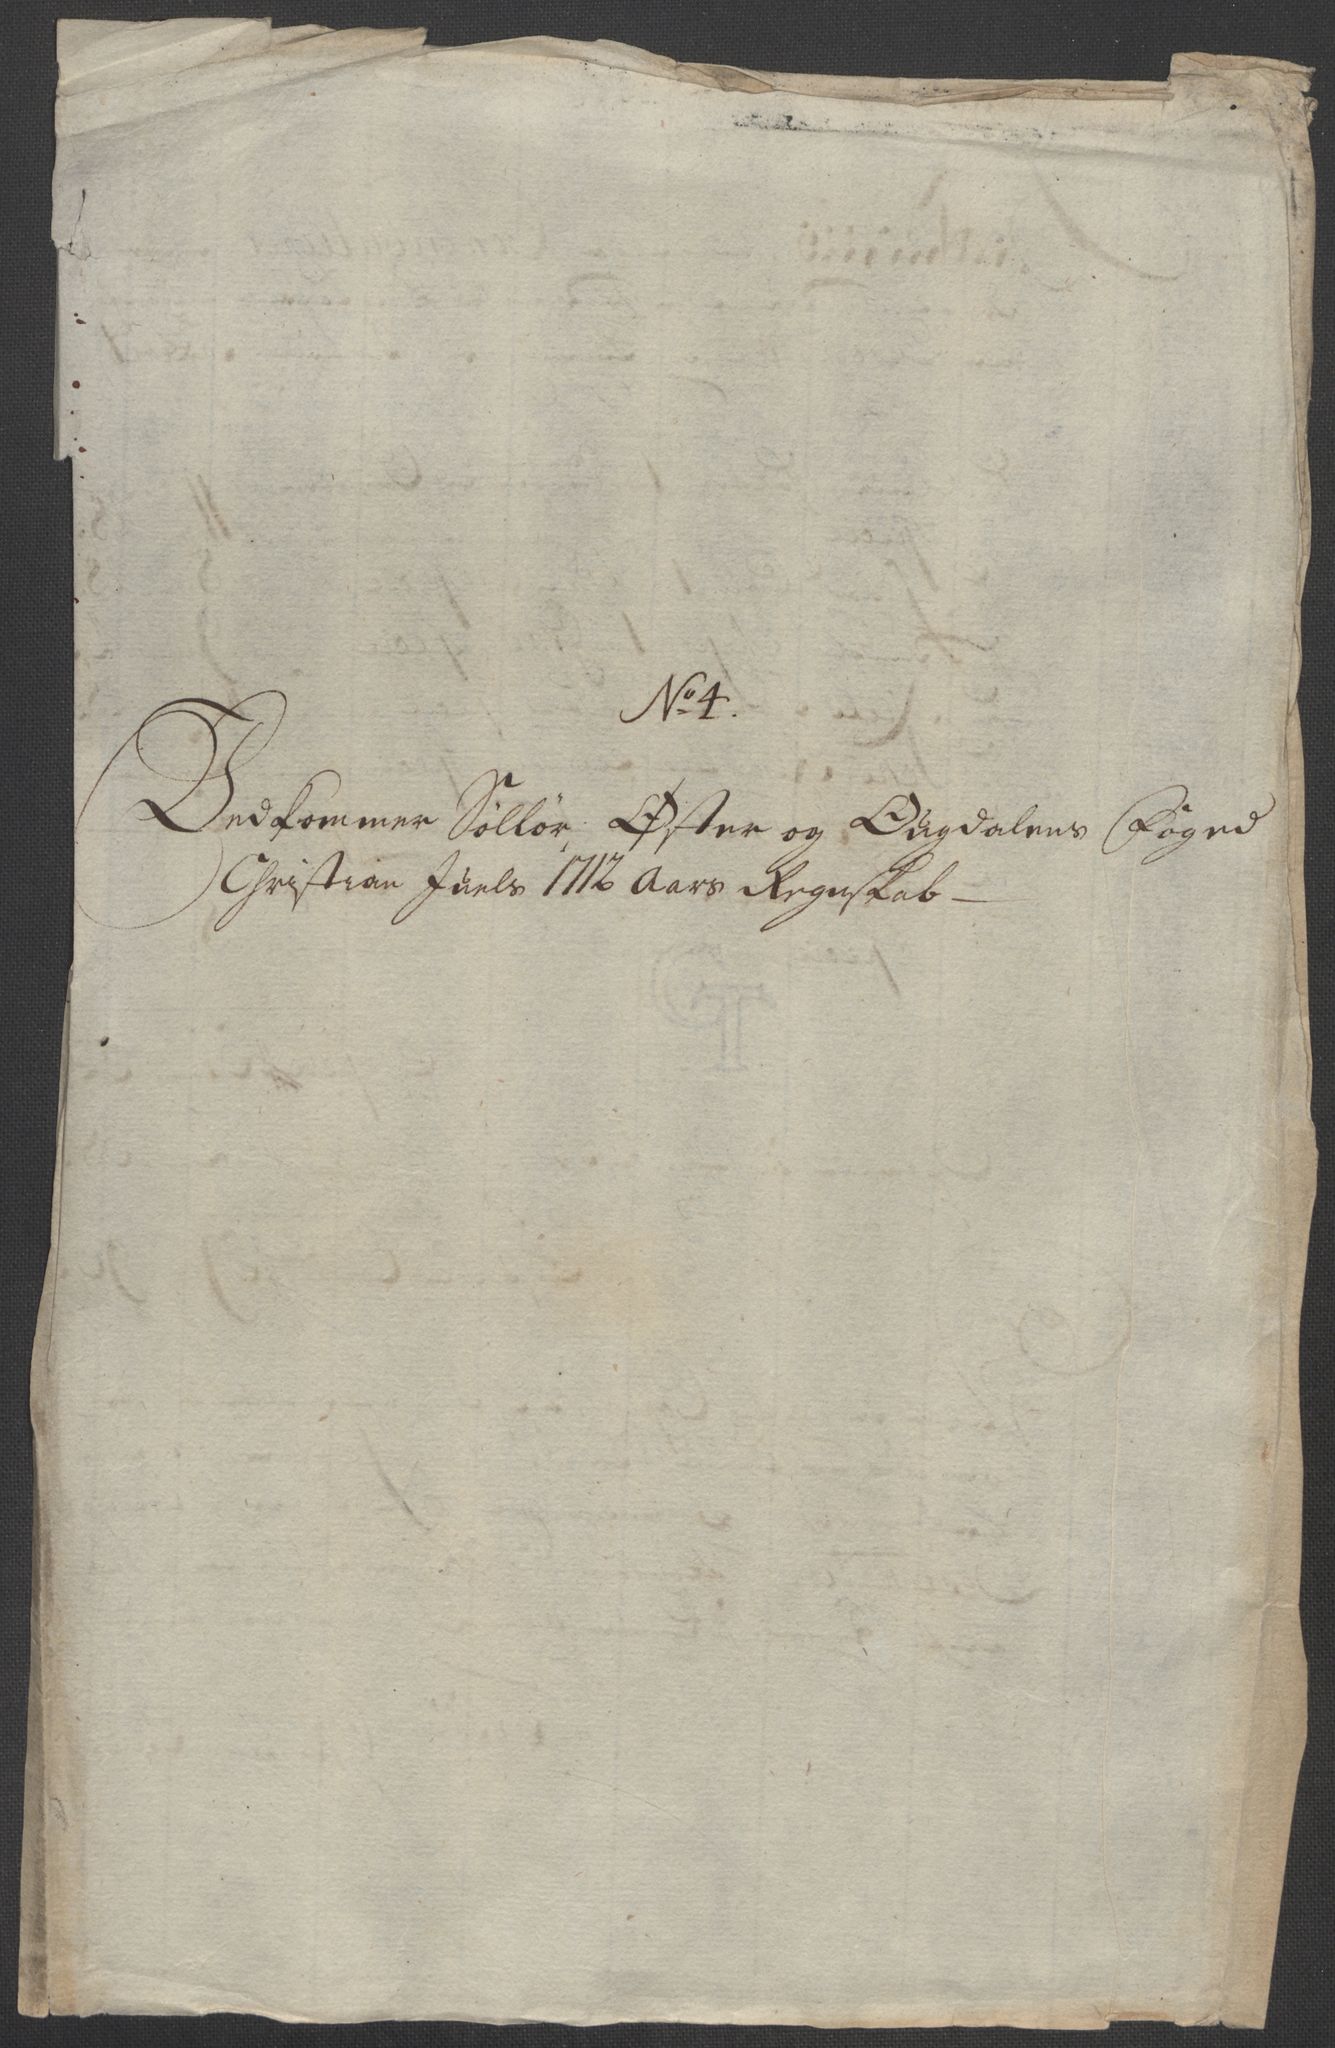 No 4.
Vedkommer Sollör, Øster og Oudalens Foged
Christian Juels 1712 Aars Regnskab –